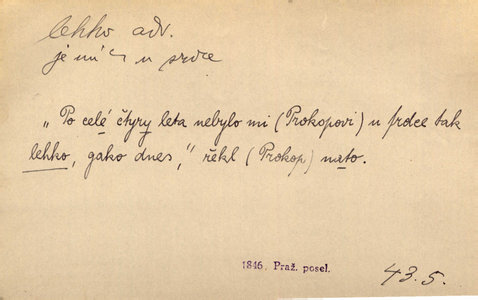 lehko adv.
je mi ~ u srdce
„Po celé čtyry leta nebylo mi (Prokopovi) u srdce tak
lehko, gako dnes,“ řekl (Prokop) nato.
1846, Praž. posel.
43.5.